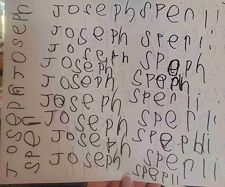 JOSEPH SPERLI
JOSEPH SPERLI
JOSEPH SPEPH
JOSEPH SPEPH
JOSEPH SPERLI
JOSEPH SPERLI
JOSEPH SPEPHLI
JOSEPH SPERLI
SPELI
JOSEPH JOSEPH
SPELI